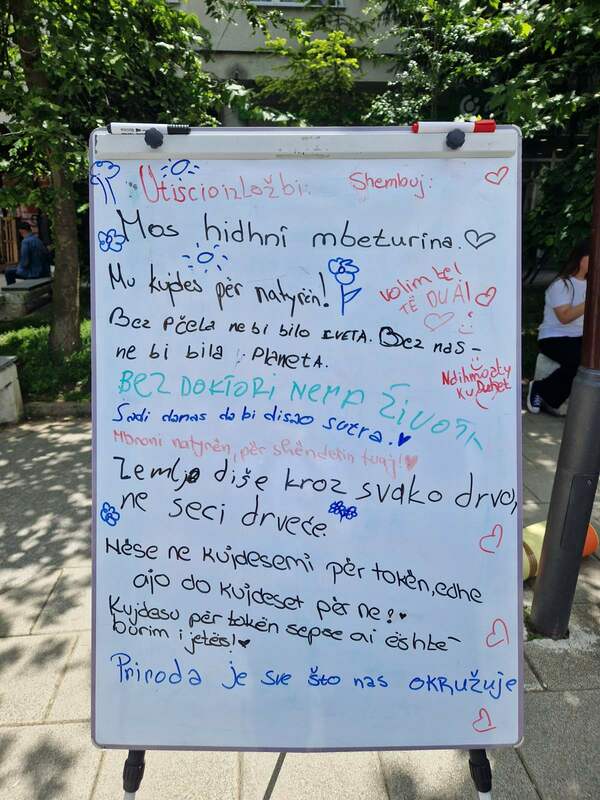 Utisci o izložbi: Shembuj:
Mos hidhni mbeturina.
Mu kujdes për natyrën!
Volim te!
TË DUA!
Bez pčela ne bi bilo cveta. Bez nas-
ne bi bila planeta.
Ndihmo aty
ku Duhet
BEZ DOKTORI NEMA ŽIVOTA
Sadi danas da bi disao sutra.
Mbroni natyrën, për shëndetin tuaj!
Zemlja diše kroz svako drvo,
ne seci drveće.
Nëse ne kujdesemi për tokën, edhe
ajo do kujdeset për ne!
Kujdesu për tokën sepse ai është
burim i jetës!
Priroda je sve što nas okružuje